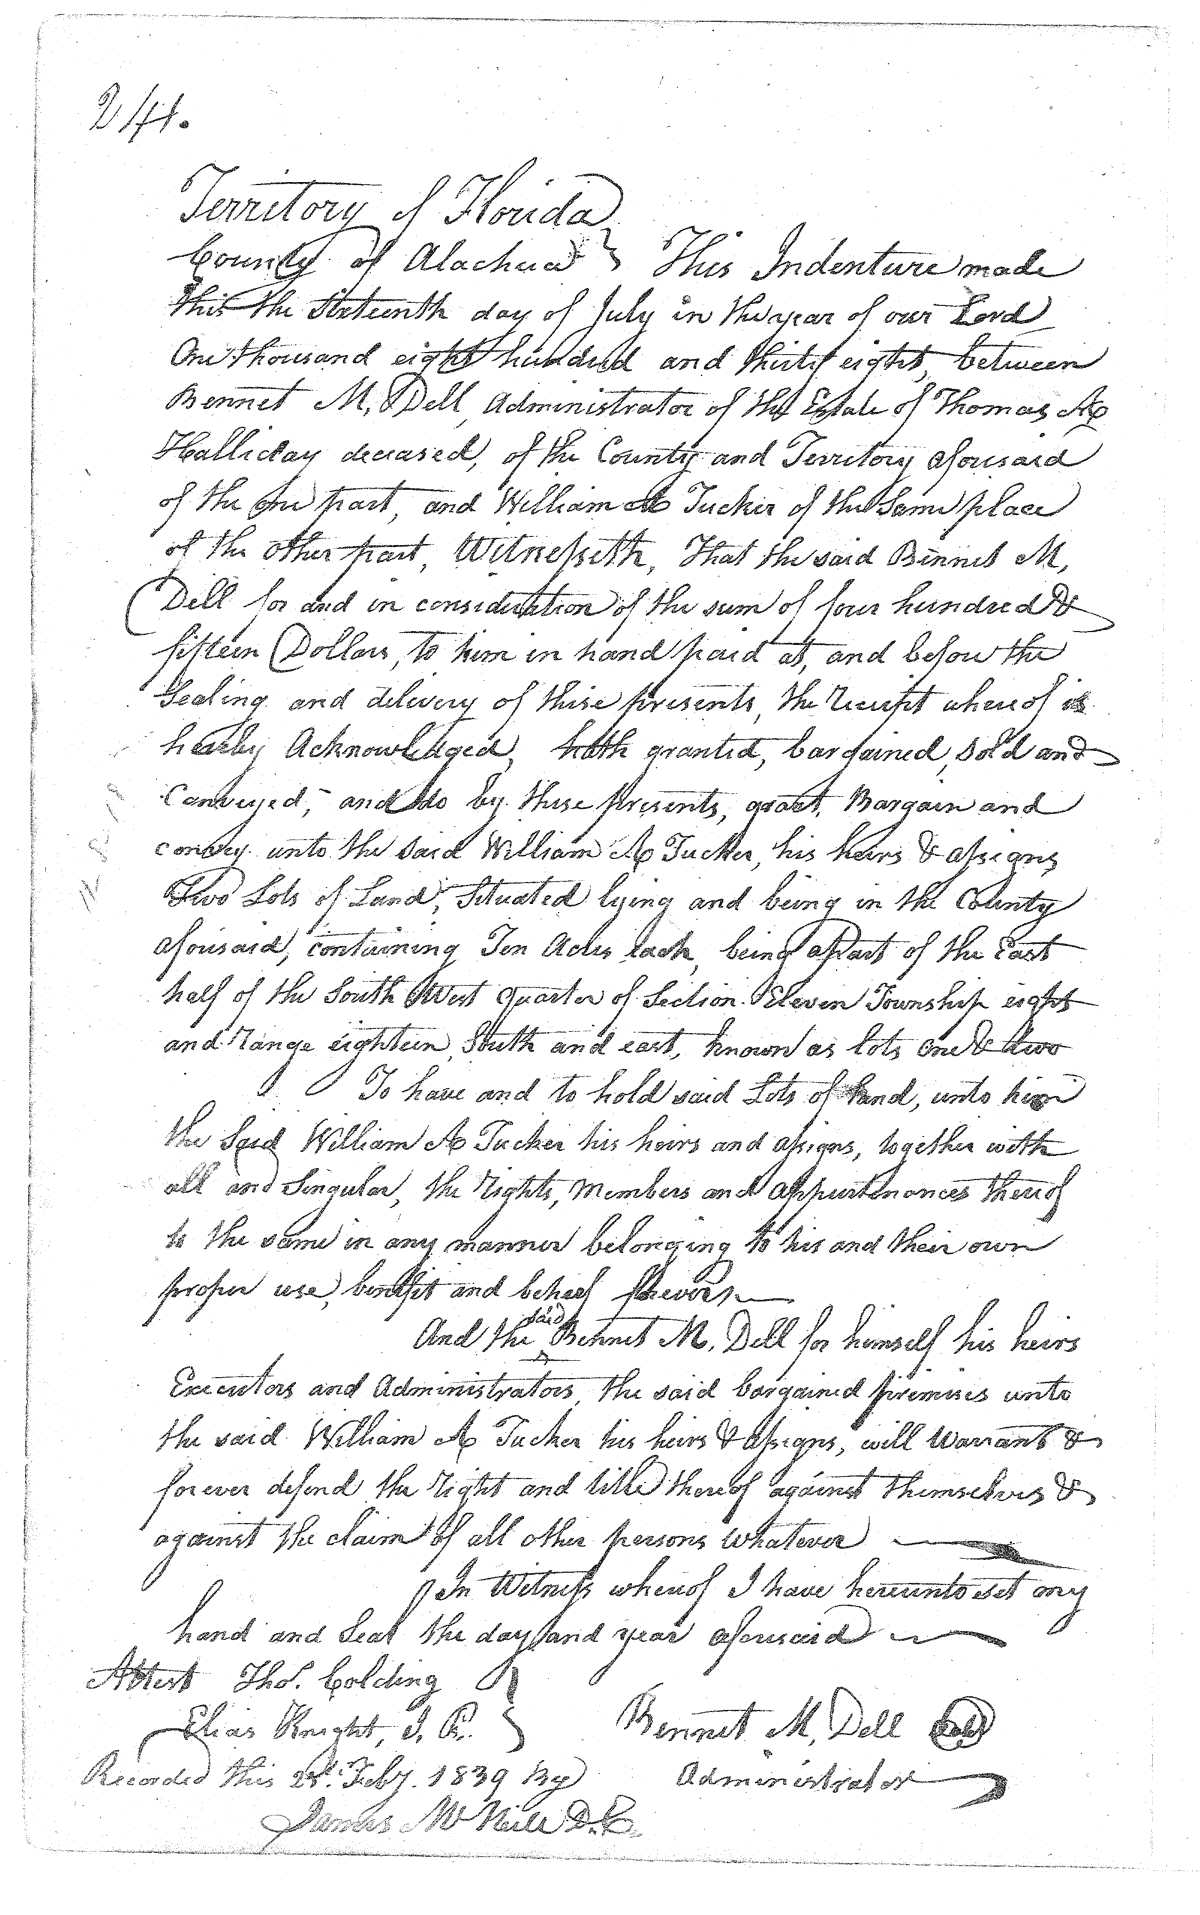 244.
Territory of Florida
County of Alachua } This Indenture made
this the Sixteenth day of July in the year of our Lord
One thousand eight hundred and thirty eight, between
Bennet M. Dell, Administrator of the Estate of Thomas A
Halliday deceased, of the County and Territory aforesaid
of the one part, and William A Tucker of the Same place
of the other part, Witnesseth, That the said Bennet M.
Dell for and in consideration of the sum of four hundred &
fifteen Dollars, to him in hand paid at, and before the
Sealing and delivery of these presents, the receipt whereof is
hereby Acknowledged, hath granted, bargained, sold and
Conveyed, and do by these presents, grant, Bargain and
convey unto the said William A Tucker, his heirs & assigns
Two Lots of Land, Situated lying and being in the County
aforesaid, containing Ten Acres each, being a Part of the East
half of the South West quarter of Section Eleven Township eight
and range eighteen South and east, known as lots one & two
To have and to hold said Lots of Land, unto him
the Said William A Tucker his heirs and assigns, together with
all and Singular, the rights, Members and appurtenances thereof
to the same in any manner belonging to his and their own
proper use, benefit and behoof forever
And the said Bennet M. Dell for himself his heirs
Executors and Administrators, the said bargained premises unto
the said William A Tucker his heirs & assigns, will Warrant &
forever defend the right and title thereof against themselves &
against the claim of all other persons whatever
In Witness whereof I have hereunto set my
hand and Seal the day and year aforesaid
Attest Thos. Colding
Elias Knight, J. P. } Bennet M. Dell Seal
Recorded this Feby. 1839 By Administrator
James McNeill D.C.